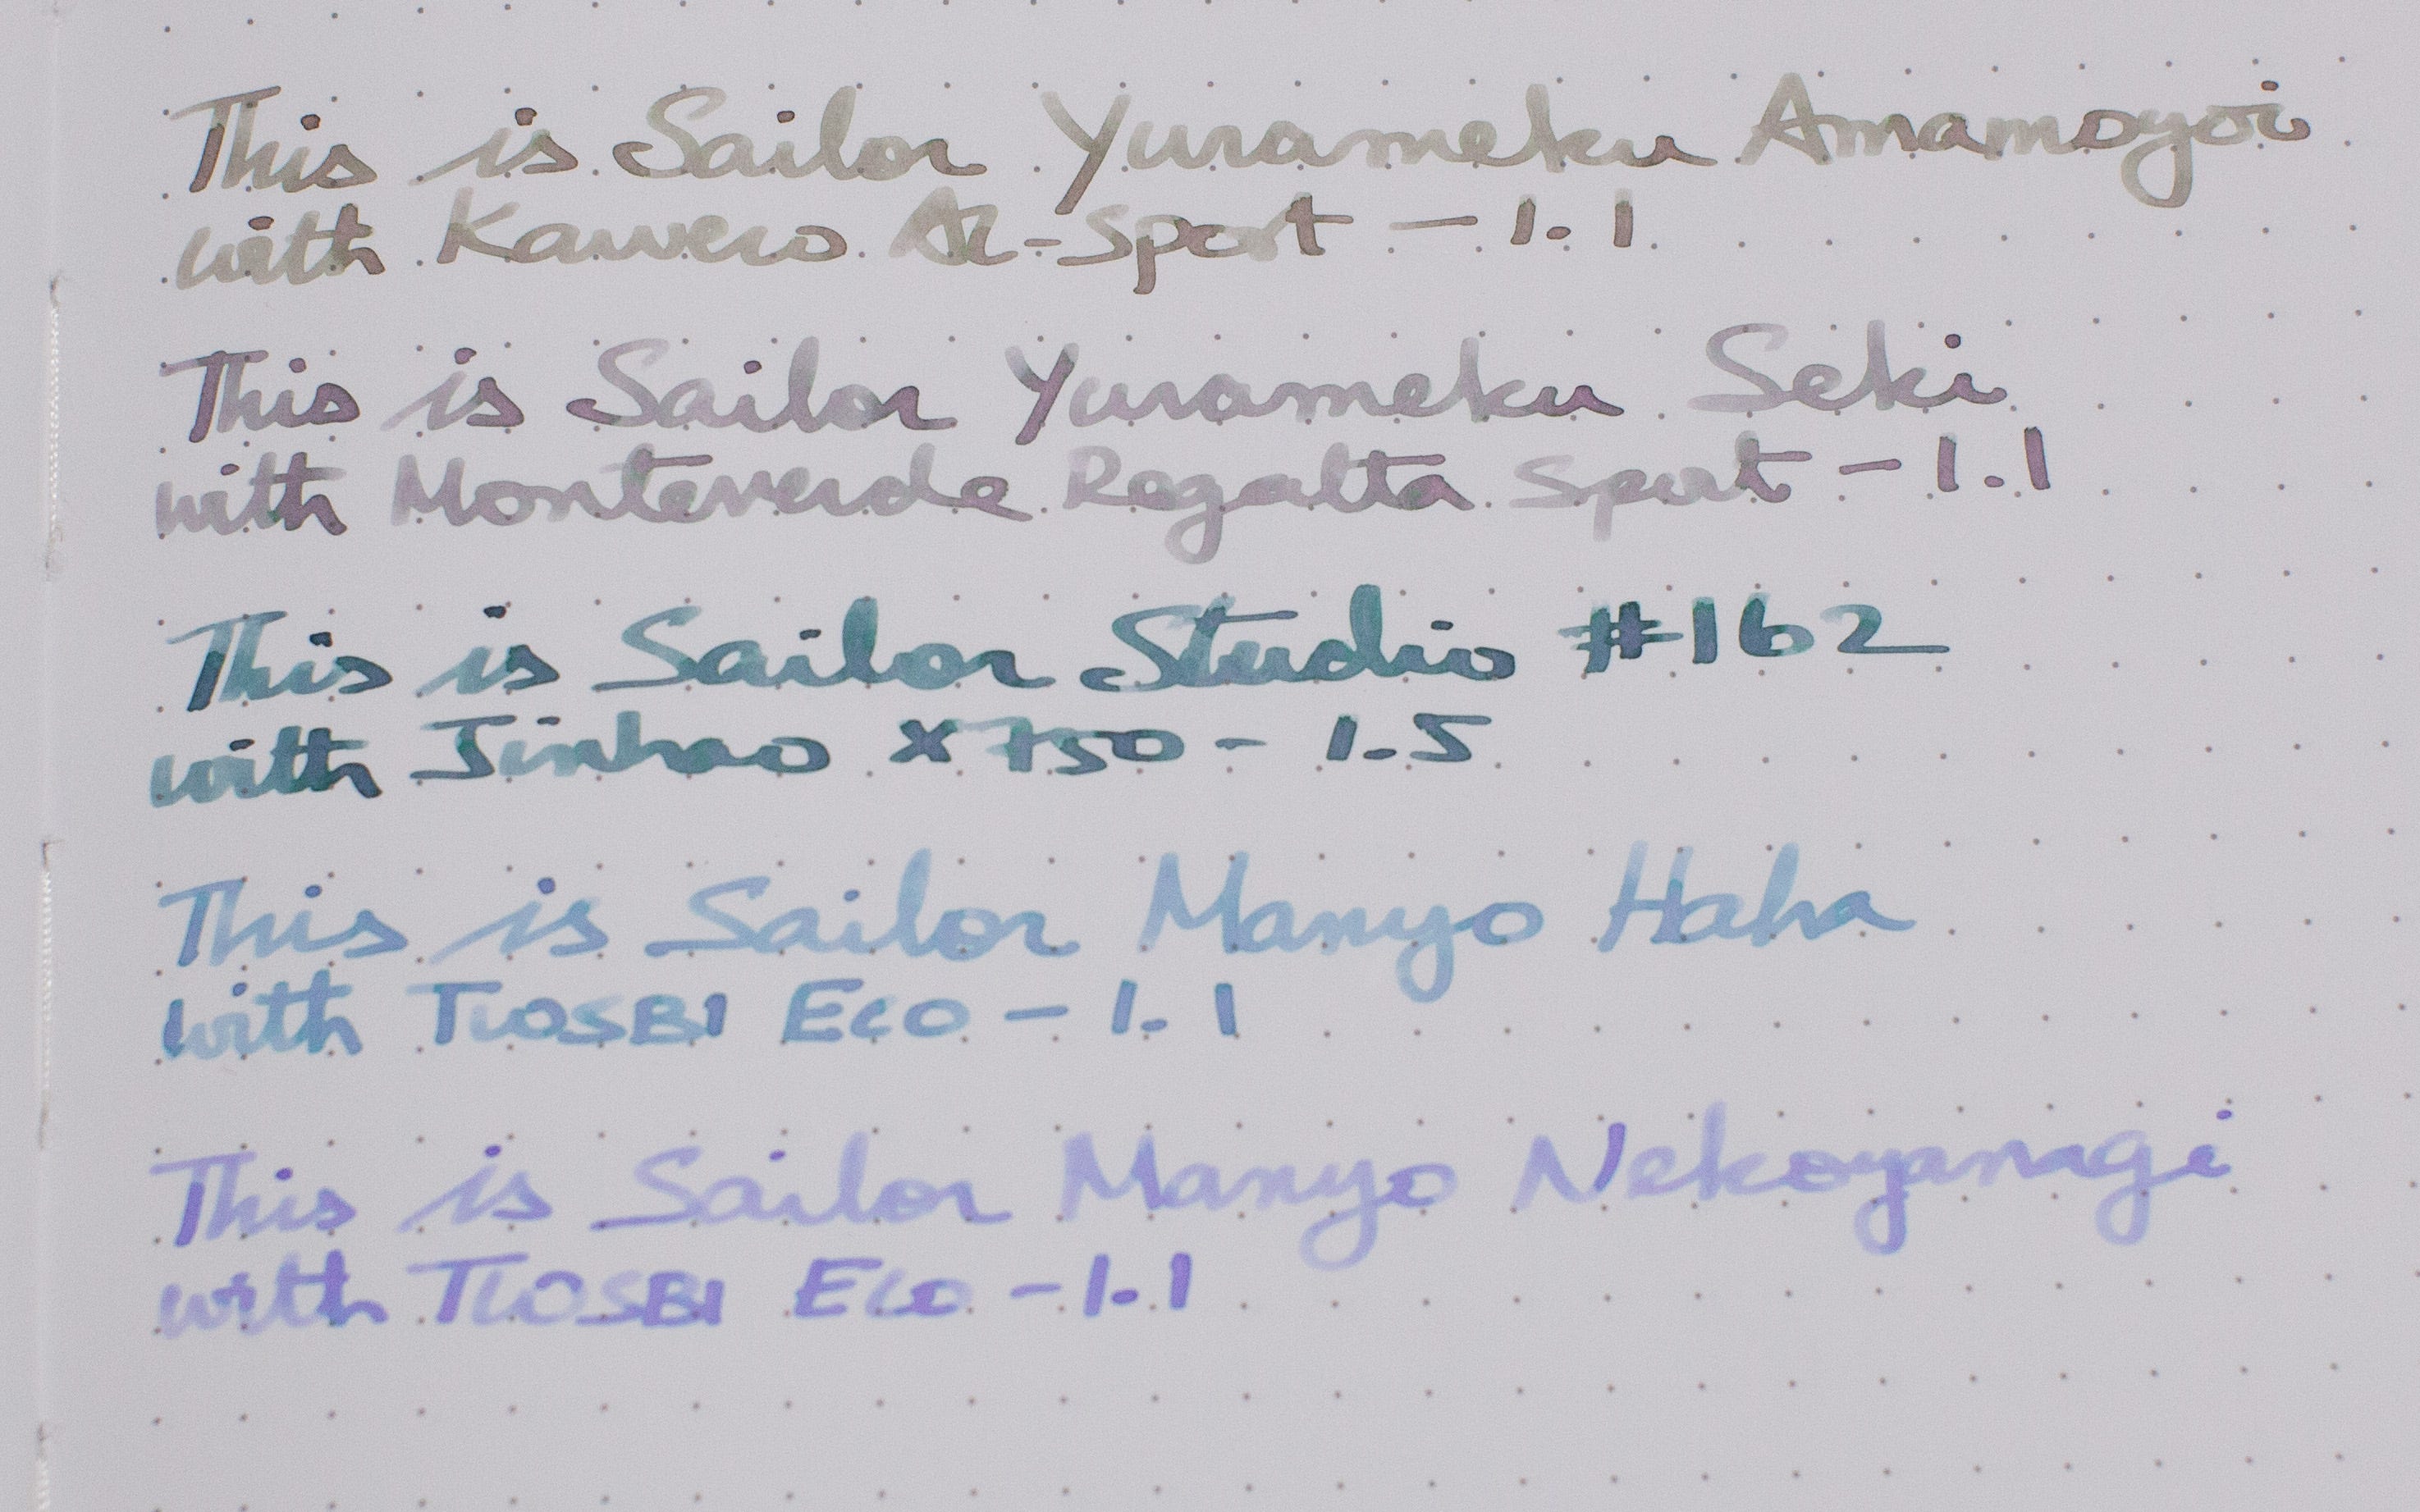 This is Sailor Yurameku Amamoyoi
with Kaweco AL-Sport - 1.1
This is Sailor Yurameku Seki
with Monteverde Regatta Sport - 1.1
This is Sailor Studio #162
with Jinhao X750 - 1.5
This is Sailor Manyo Haha
with TWSBI Eco - 1.1
This is Sailor Manyo Nekoyanagi
with TWSBI Eco - 1.1